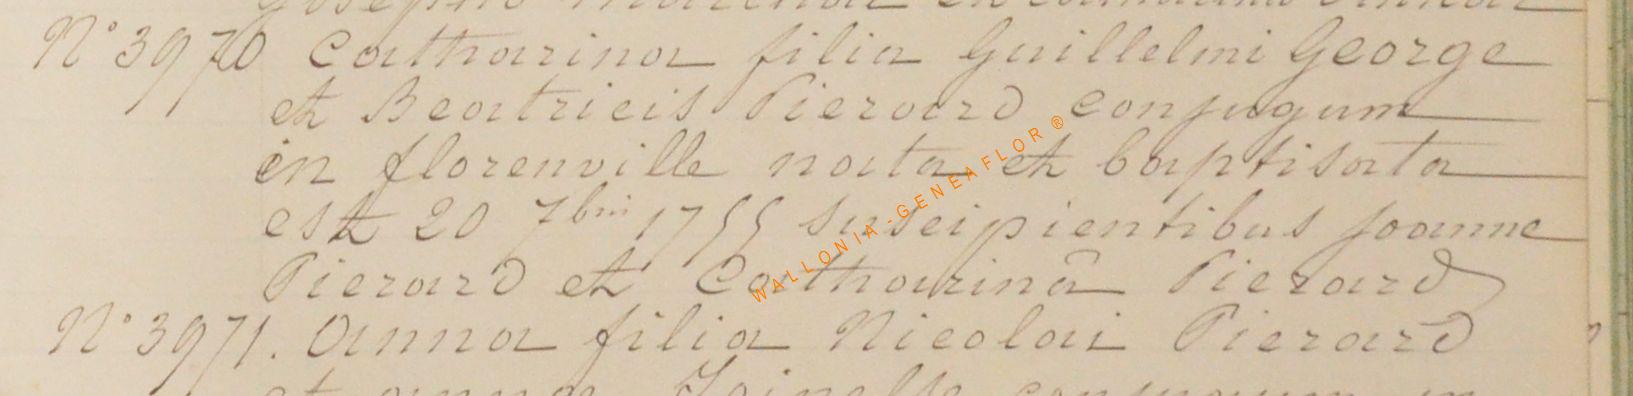 N° 3970 Catharina filia Guillelmi George
et Beatricis Pierard conjugum
in florenville nata et baptisata
est 20 7bris 1755 suscipientibus joanne
Pierard et Catharinâ Pierard
N° 3971. Anna filia Nicolai Pierard
et annae conjugum in
WALLONIA-GENEAFLOR ®